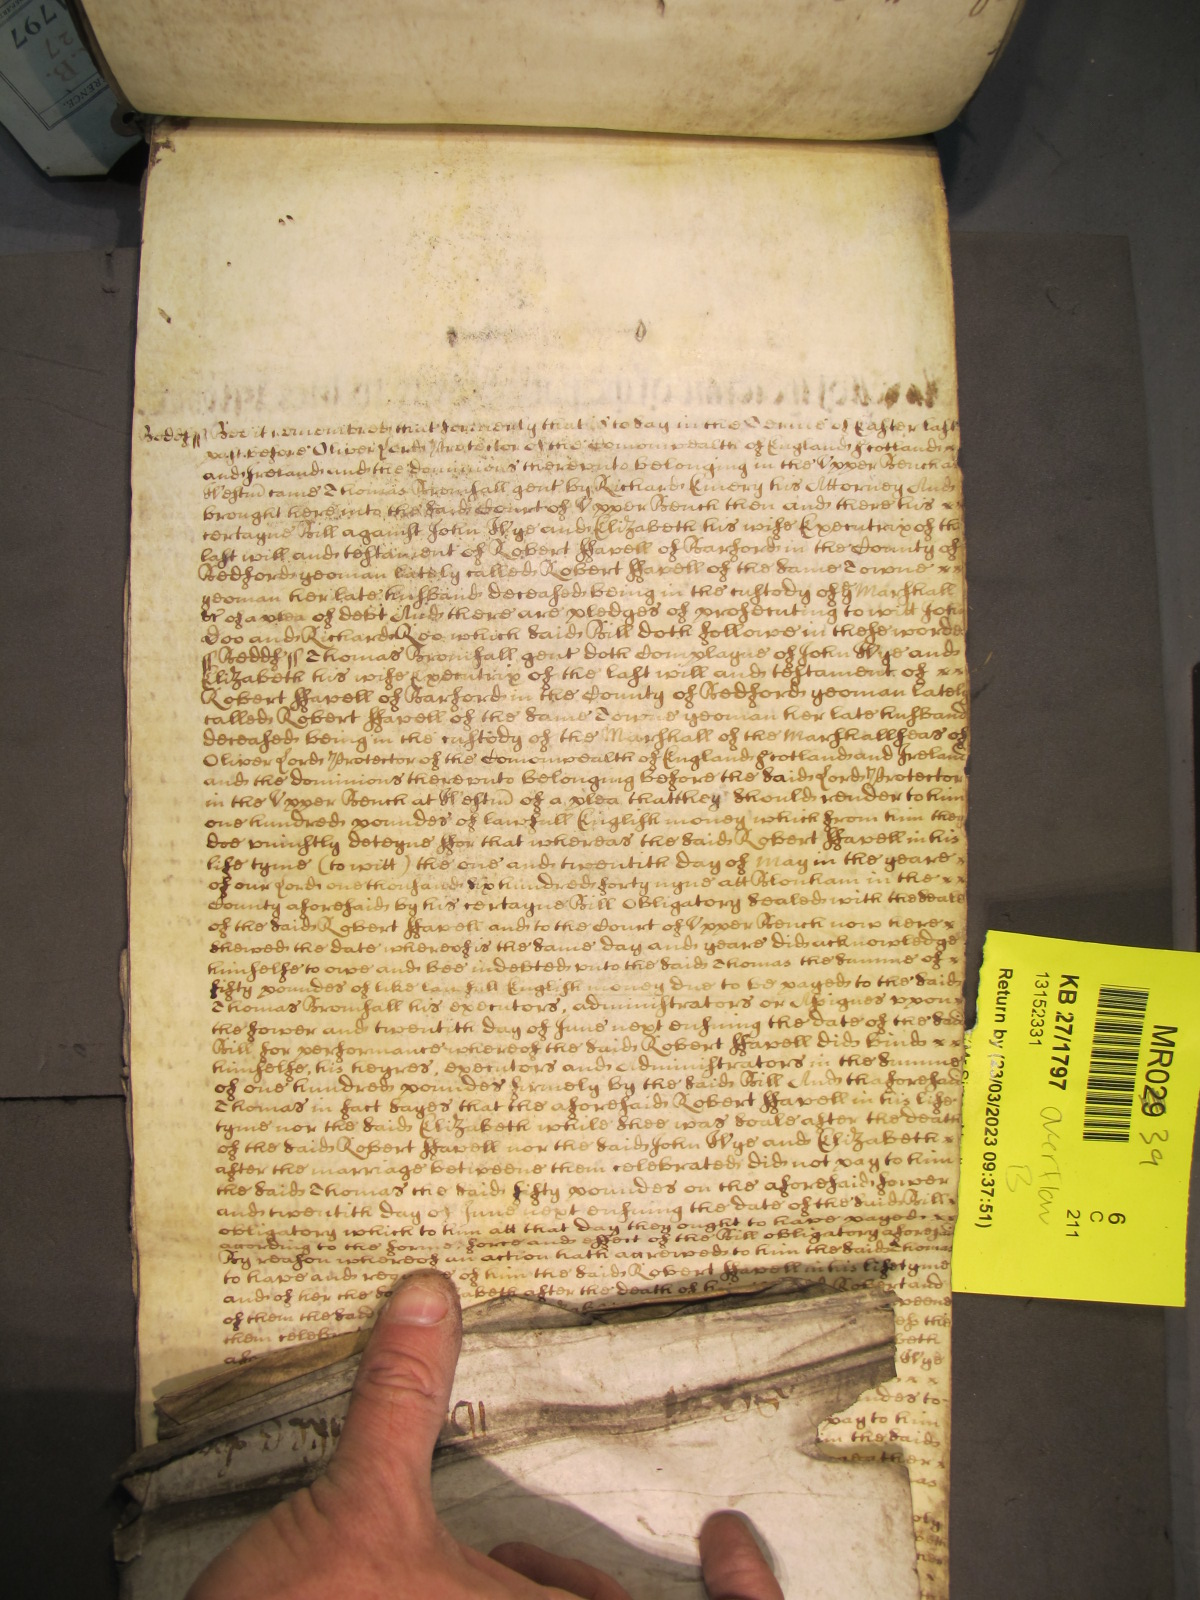 Bedds ss Bee it remembred that formerly that is to day in the Terme of Easter last
past before Oliver Lord Protector of the Comonwealth of England Scotland
and Ireland and the dominions thereunto belonging in the Upper Bench at
Westm came Thomas Bromsall gent by Richard Emery his Attorney And
brought here into the said Court of Upper Bench then and there his x
certayne Bill against John Wye and Elizabeth his wife Executrix of the
last will and testament of Robert Hawell of Barford in the County of
Bedford yeoman lately called Robert Hawell of the same Towne xx
yeoman her late husband deceased being in the custody of Marshall
&c of a plea of debt And there are pledges of prosecuting to witt John
Doo and Richard Roo which said Bill doth followe in these wordes
ss Bedds ss Thomas Bromsall gent doth Complayne of John Wye and
Elizabeth his wife Executrix of the last will and testament of xx
Robert Hawell of Barford in the County of Bedford yeoman lately
called Robert Hawell of the same Towne yeoman her late husband
deceased being in the custody of the Marshall of the Marshallseas of
Oliver Lord Protector of the Comonwealth of England Scotland and Ireland
and the dominions thereunto belonging before the said Lord Protector
in the Upper Bench at Westm of a plea that they should render to him
one hundred poundes of lawfull English money which from him they
doe uniustly deteyne For that whereas the said Robert Hawell in his
life tyme (to witt) the one and twentith day of May in the yeare x
of our Lord one thousand six hundred forty nyne att Blonham in the xx
County aforesaid by his certayne Bill Obligatory sealed with the seale
of the said Robert Hawell and to the Court of Upper Bench now here x
shewed the date whereof is the same day and yeare did acknowledge
himselfe to owe and bee indebted unto the said Thomas the summe of x
fifty poundes of like lawfull English money due to be payed to the said
Thomas Bromsall his executors, administrators or Assignes uppon
the fower and twentith day of June next ensuing the date of the said
Bill for performance whereof the said Robert Hawell did binde xx
himselfe, his heyres, executors and Administrators in the summe
of one hundred poundes firmely by the said Bill And thaforesaid
Thomas in fact sayes that the aforesaid Robert Hawell in his life
tyme nor the said Elizabeth while shee was soale after the death
of the said Robert Hawell nor the said John Wye and Elizabeth x
after the marriage betweene them celebrated did not pay to him
the said Thomas the said fifty poundes on the aforesaid fower
and twentith day of June next ensuing the date of the said Bill
obligatory which to him att that day they ought to have payed xx
according to the forme force and effect of the Bill obligatory aforesaid
By reason whereof an action hath accrewed to him the said Thomas
to have and of him the said Robert Hawell in his lifetyme
and of her the after the death of Robert and
of them the said
them
beth
Wye
xx
to
pay to him
the said
MR029 39
KB 27/1797 overflow
13152331 B
Return by (23/03/2023 09:37:51)
6
C
211
797